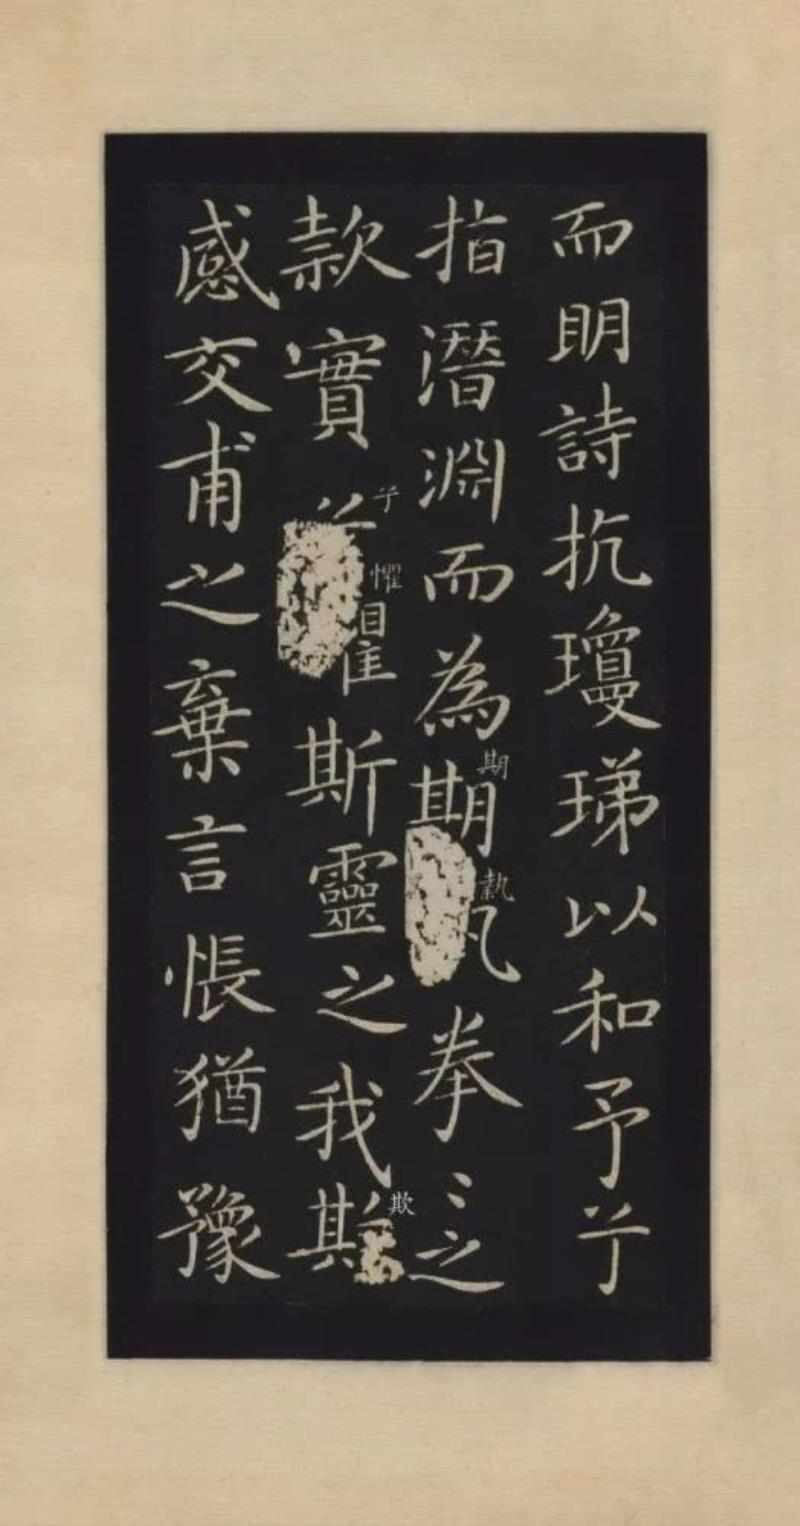 而眀詩抗瓊珶以和予兮
指潛淵而為期執拳〻之
期
執
款實兮懼斯靈之我欺
兮
懼
欺
感交甫之棄言悵猶豫